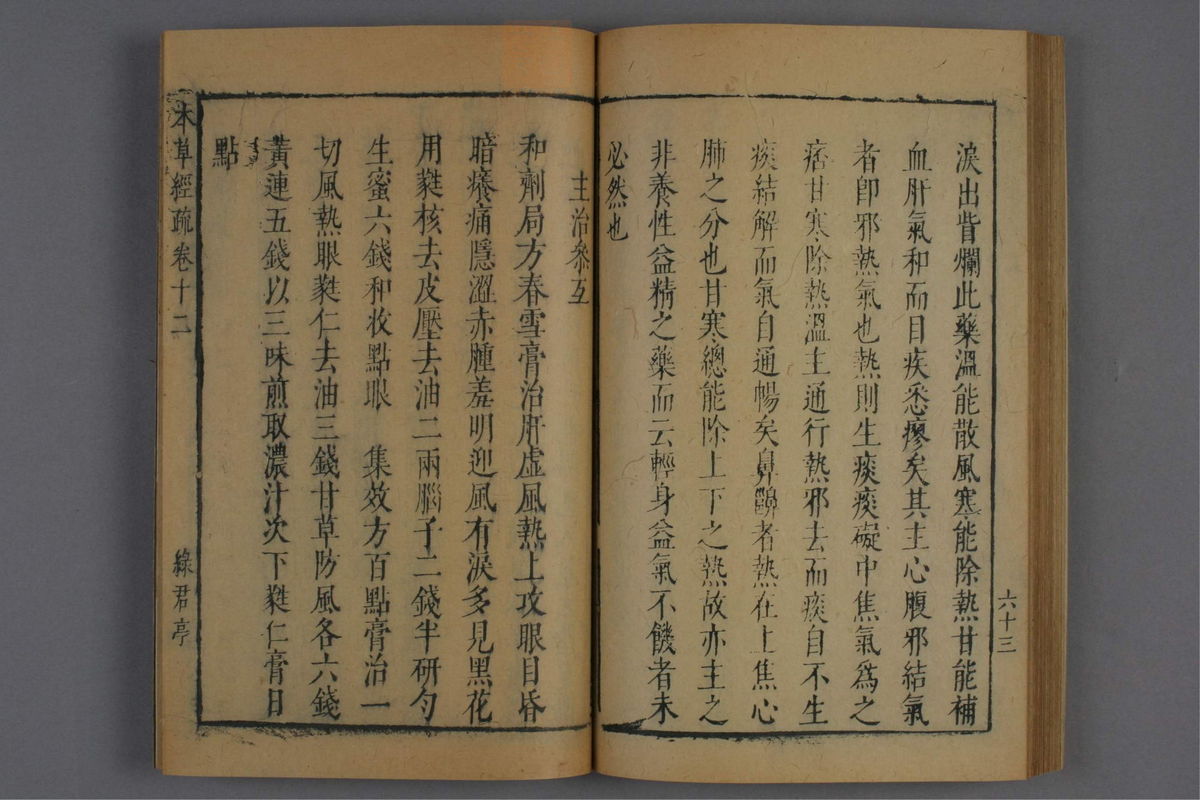 淚出眥爛此藥溫能散風寒能除熱甘能補
血肝氣和而目疾悉瘳矣其主心腹邪結氣
者卽邪熱氣也熱則生痰痰礙中焦氣爲之
痞甘寒除熱溫主通行熱邪去而痰自不生
痰結解而氣自通暢矣鼻鼽者熱在上焦心
肺之分也甘寒總能除上下之熱故亦主之
非養性益精之藥而云輕身益氣不饑者未
必然也
六十三
主治參互
和劑局方春雪膏治肝虛風熱上攻眼目昏
暗癢痛隱澀赤腫羞明迎風有淚多見黑花
用蕤核去皮壓去油二兩腦子二錢半研勻
生蜜六錢和收點眼　集效方百點膏治一
切風熱眼蕤仁去油三錢甘草防風各六錢
黃連五錢以三味煎取濃汁次下蕤仁膏日
點
本草經疏卷十二
綠君亭